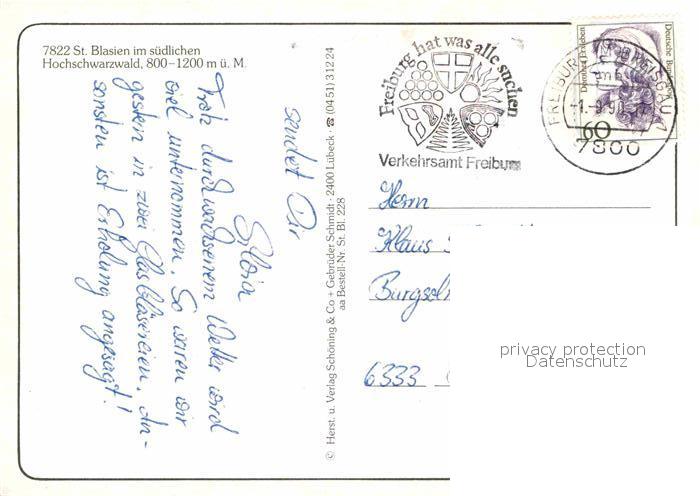 7822 St. Blasien im südlichen
Hochschwarzwald, 800–1200 m ü. M.
Trotz durchwachsenem Wetter wird
viel unternommen. So waren wir
gestern in zwei Glasbläsereien. An-
sonsten ist Erholung angesagt!
sendet Dir
Silvia
© Herst. u. Verlag Schöning & Co + Gebrüder Schmidt · 2400 Lübeck · ☎ (04 51) 3 12 24
aa Bestell-Nr. St. Bl. 228
Freiburg hat was alle suchen
Verkehrsamt Freiburg
Deutsche Bundespost
Dorothea Erxleben
60
FREIBURG BREISGAU 1
-1.-9.90
7800
Herrn
Klaus
6333
privacy protection
Datenschutz